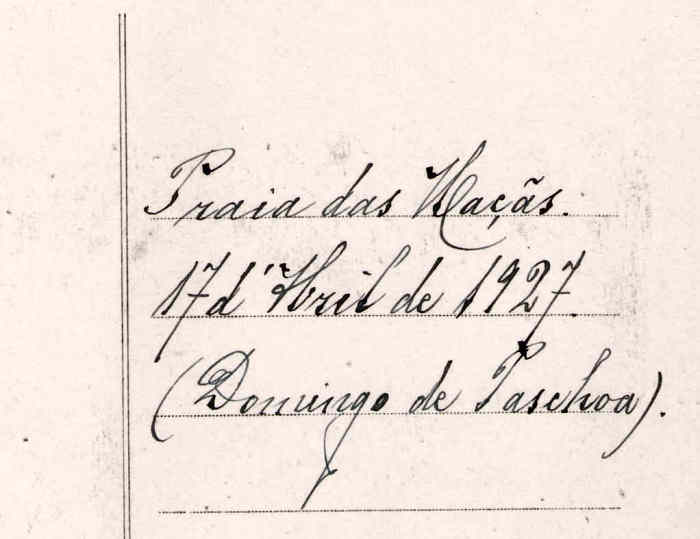 Praia das Maçãs.
17 d'Abril de 1927.
(Domingo de Paschoa).